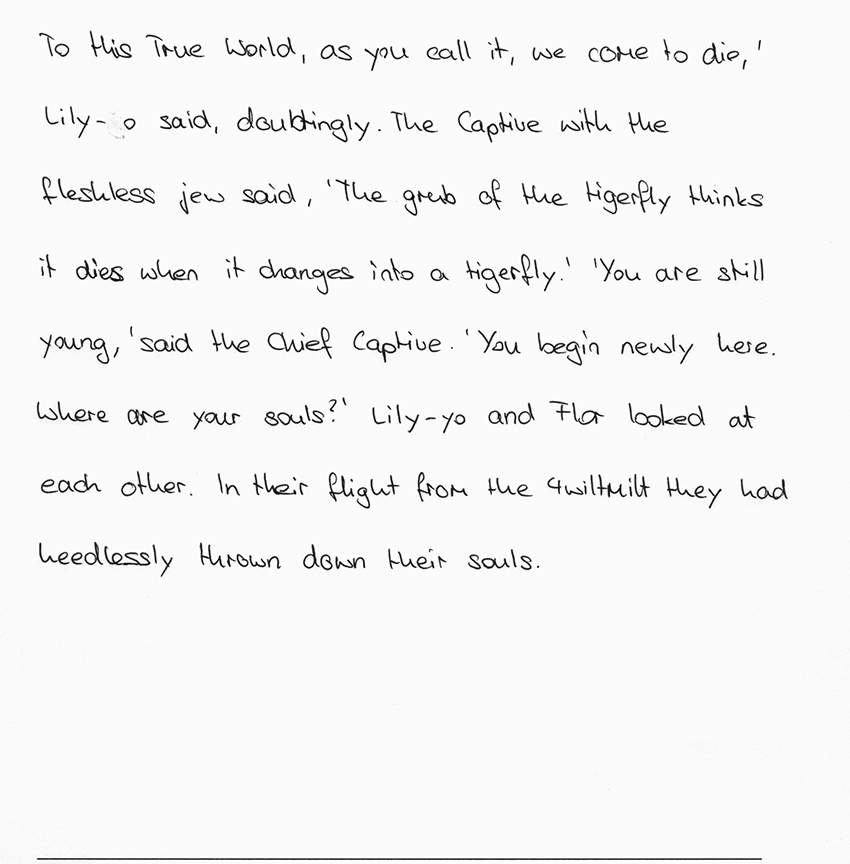 To this True World, as you call it, we come to die,'
Lily- o said, doubtingly. The Captive with the
fleshless jew said, 'The grub of the tigerfly thinks
it dies when it changes into a tigerfly.' 'You are still
young,' said the Chief Captive. 'You begin newly here.
Where are your souls?' Lily-yo and Flor looked at
each other. In their flight from the 4wiltmilt they had
heedlessly thrown down their souls.